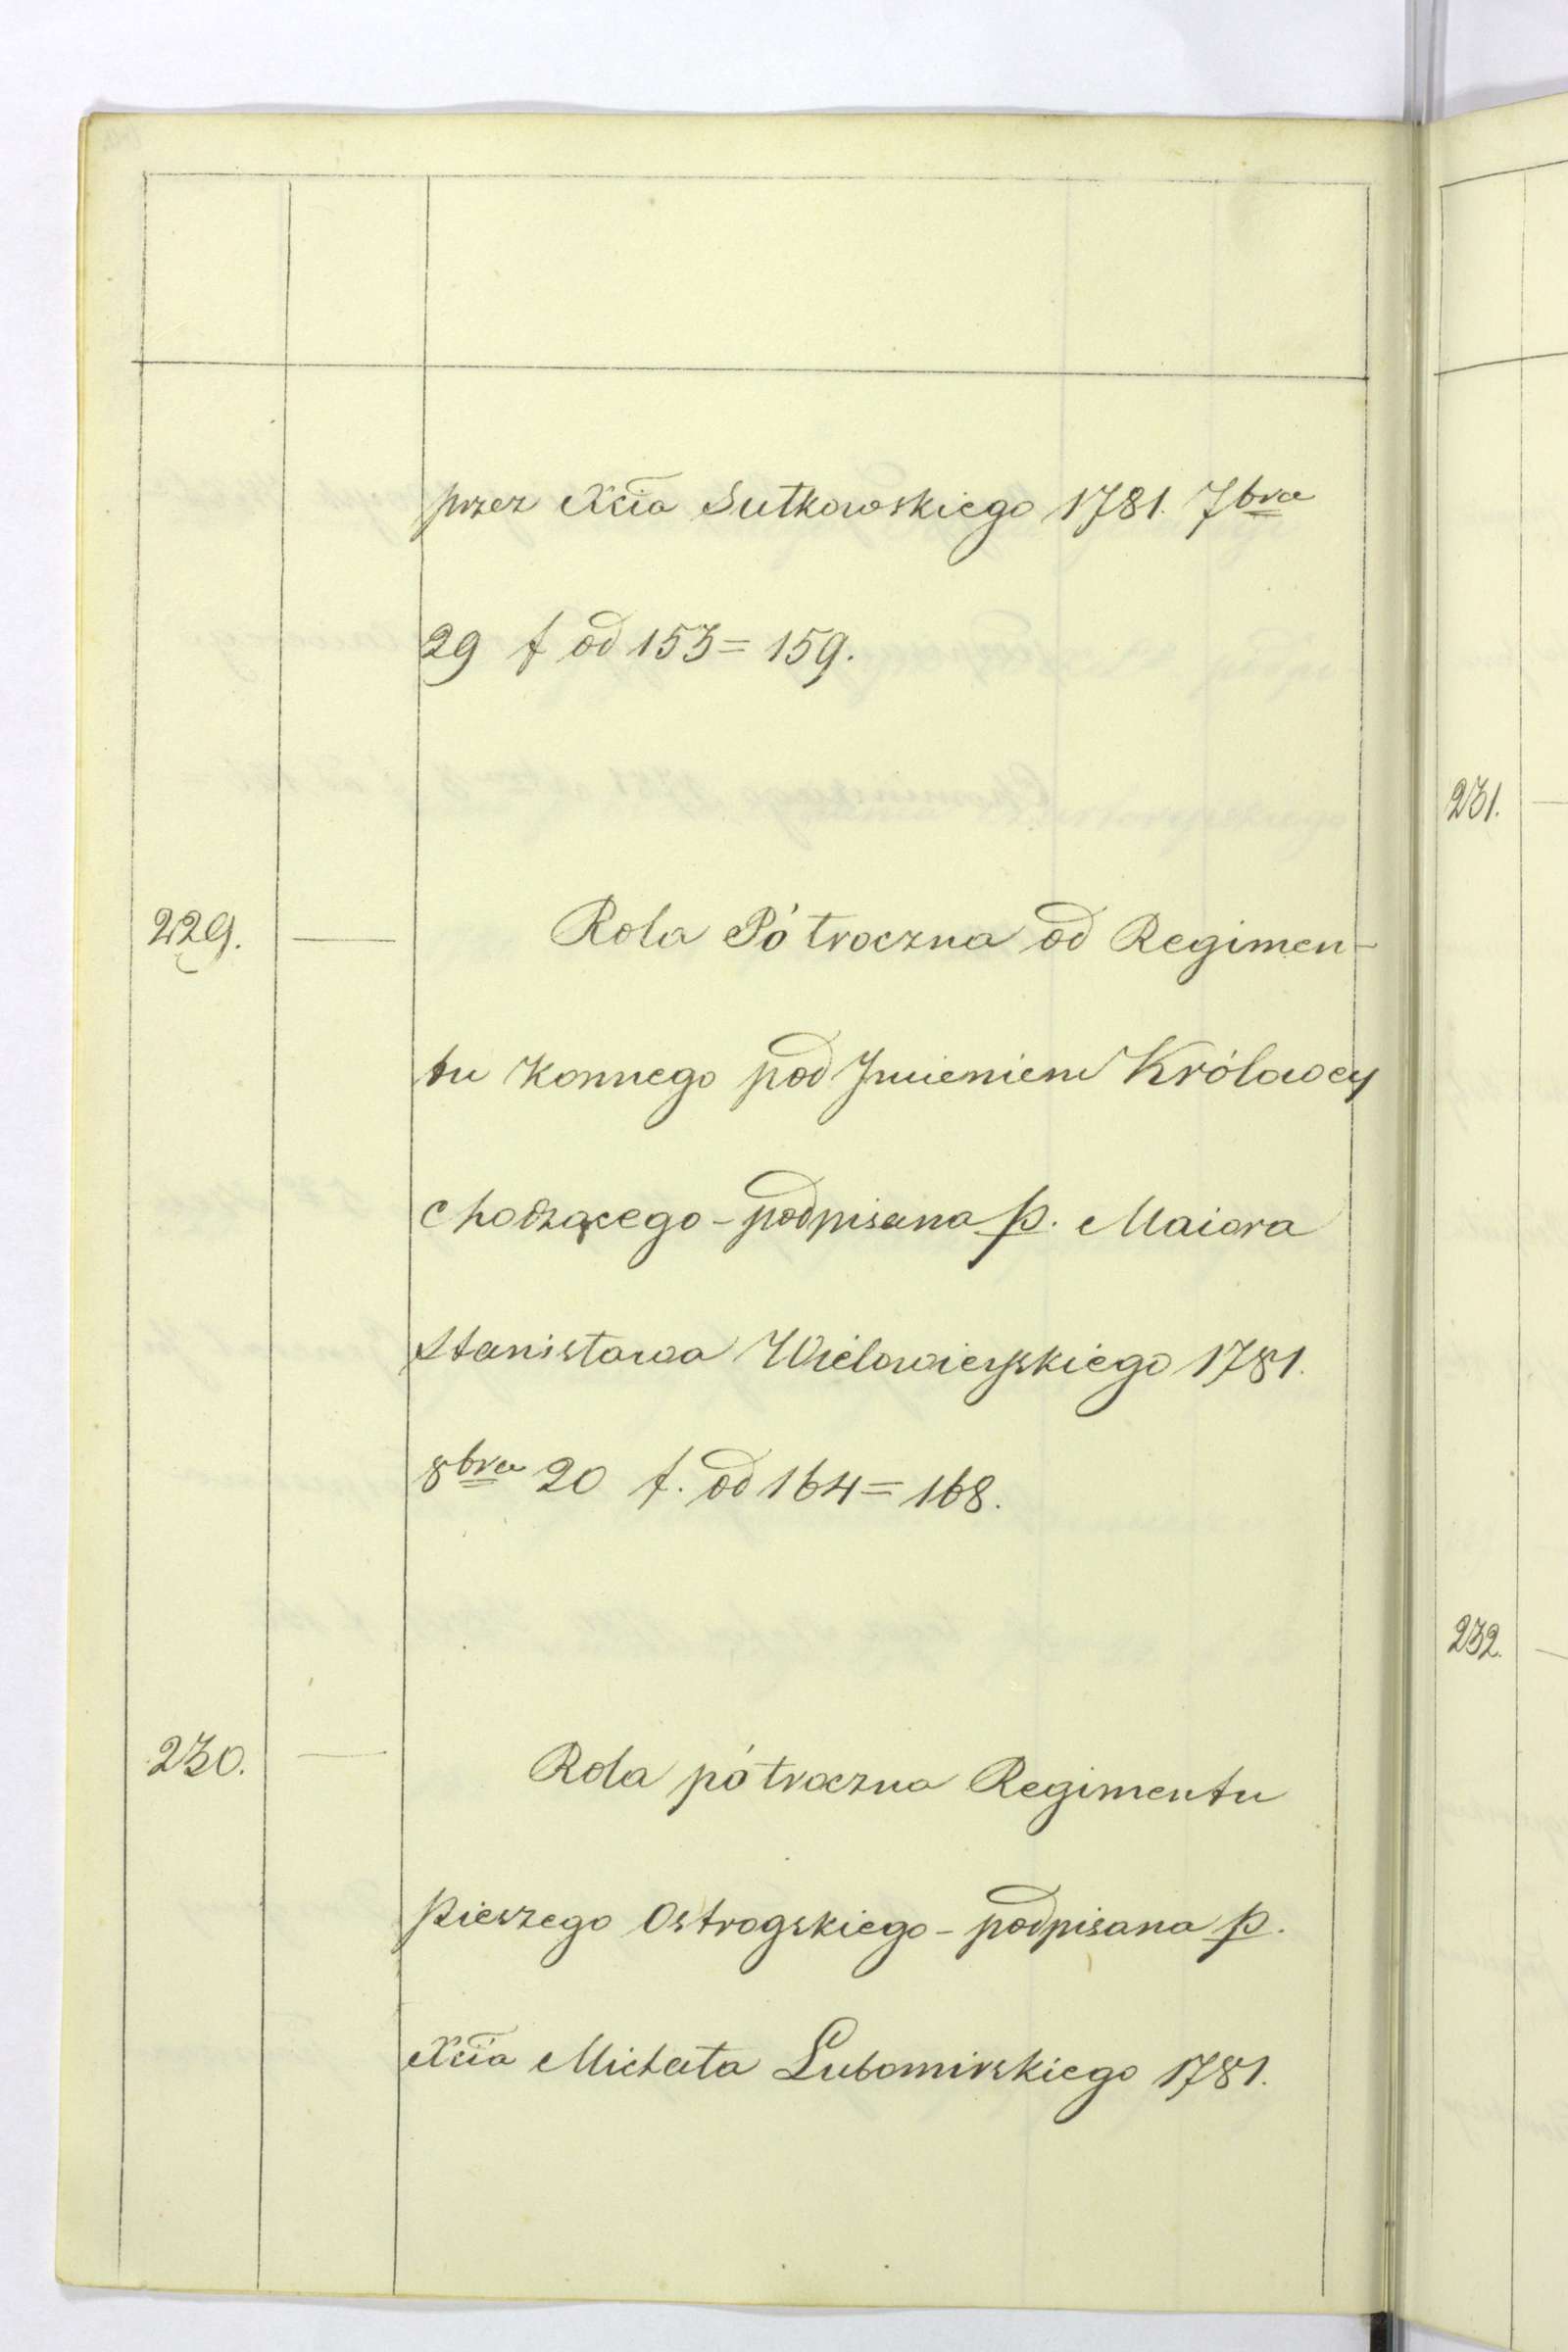 przez Xcia Sułkowskiego 1781. 7bra
29 f od 153 = 159.
229. — Rola Półroczna od Regimen-
tu Konnego pod Jmieniem Królowey
chodzącego - podpisana p. Maiora
Stanisława Wielowieyskiego 1781.
8bra 20 f. od 164 = 168.
230. — Rola półroczna Regimentu
pieszego Ostrogskiego - podpisana p.
Xcia Michała Lubomirskiego 1781.
231.
232.